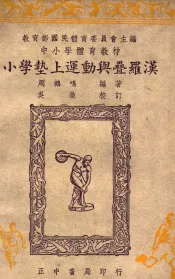 教育部國民體育委員會主編
中小學體育教材
小學墊上運動與疊羅漢
周鶴鳴 編著
吳澂 校訂
正中書局印行